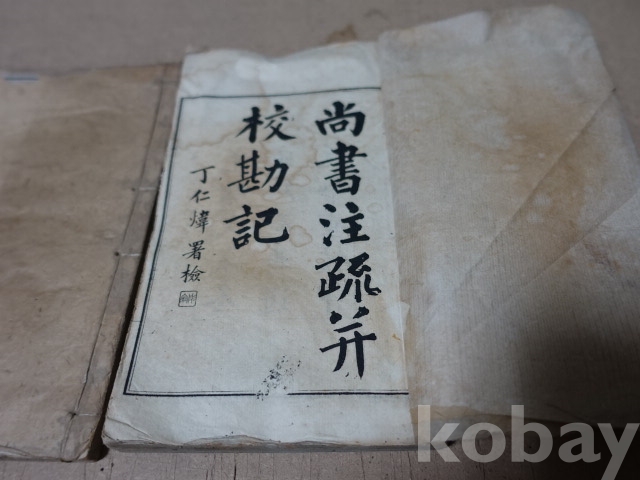 尚書注疏并
校勘記
丁仁煒署檢
kobay